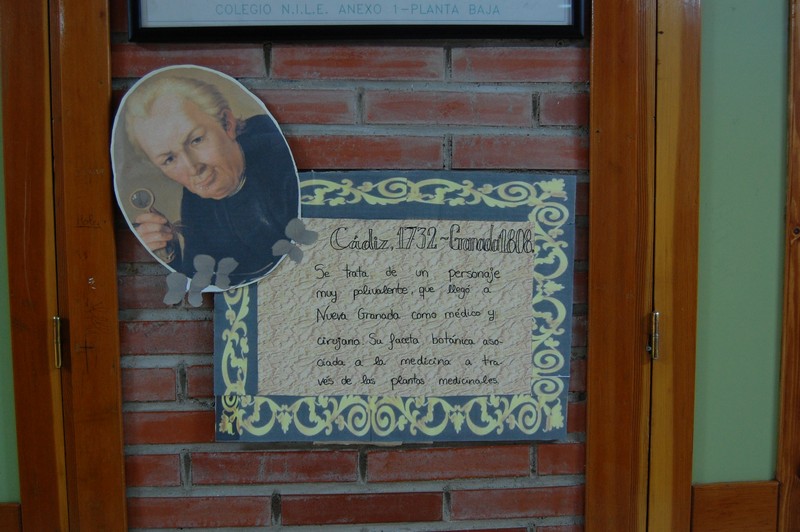 COLEGIO N.I.L.E. ANEXO 1-PLANTA BAJA
Cádiz, 1732 ~ Granada 1808.
Se trata de un personaje
muy polivalente, que llegó a
Nueva Granada como médico y
cirujano. Su faceta botánica aso-
ciada a la medicina a tra-
vés de las plantas medicinales.